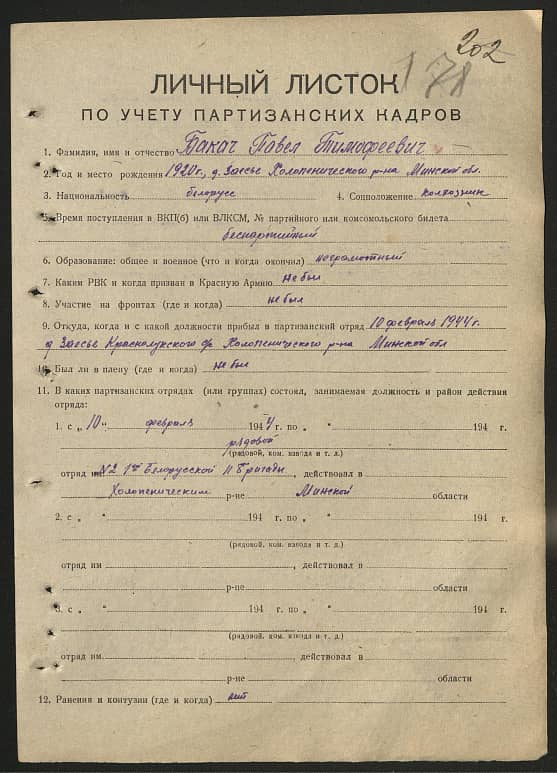 202
178
ЛИЧНЫЙ ЛИСТОК
ПО УЧЕТУ ПАРТИЗАНСКИХ КАДРОВ
1. Фамилия, имя и отчество Бакач Павел Тимофеевич
2. Год и место рождения 1920г., д. Заесье Холопенического р-на Минской обл.
3. Национальность белорусс 4. Соцположение колхозник
5. Время поступления в ВКП(б) или ВЛКСМ, № партийного или комсомольского билета
беспартийный
6. Образование: общее и военное (что и когда окончил)
7. Каким РВК и когда призван в Красную Армию не был
8. Участие на фронтах (где и когда) не был
9. Откуда, когда и с какой должности прибыл в партизанский отряд 10 февраль 1944г.
д Заесье Краснолукского Холопенического р-на Минской обл
10. Был ли в плену (где и когда) не был
11. В каких партизанских отрядах (или группах) состоял, занимаемая должность и район действия
отряда:
1. с „ 10 " февраль 1944 г. по „ " 194 г.
рядовой
(рядовой, ком. взвода и т. д.)
отряд им №2 1ой Белорусской П Бригады, действовал в
Холопеническим р-не Минской области
2. с „ " 194 г. по „ " 194 г.
(рядовой, ком. взвода и т. д.)
отряд им , действовал в
р-не области
3. с „ " 194 г. по „ " 194 г.
(рядовой, ком. взвода и т. д.)
отряд им. , действовал в
р-не области
12. Ранения и контузии (где и когда) нет